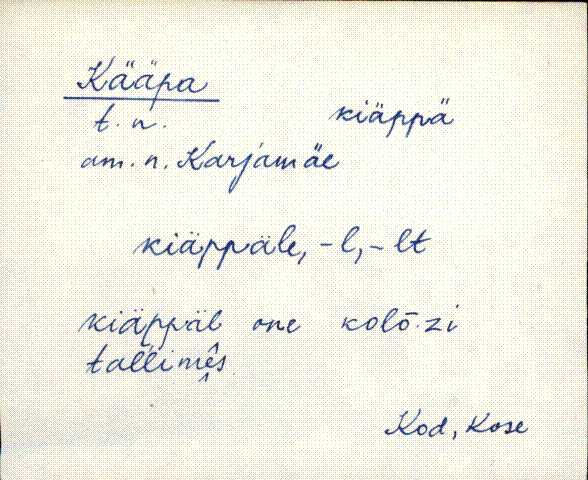 Kääpa
t. n. kiäppä
am. n. Karjamäe
kiäppäle, -l, -lt
kiäppäl one kolō·zi
tallimês
Kod, Kose